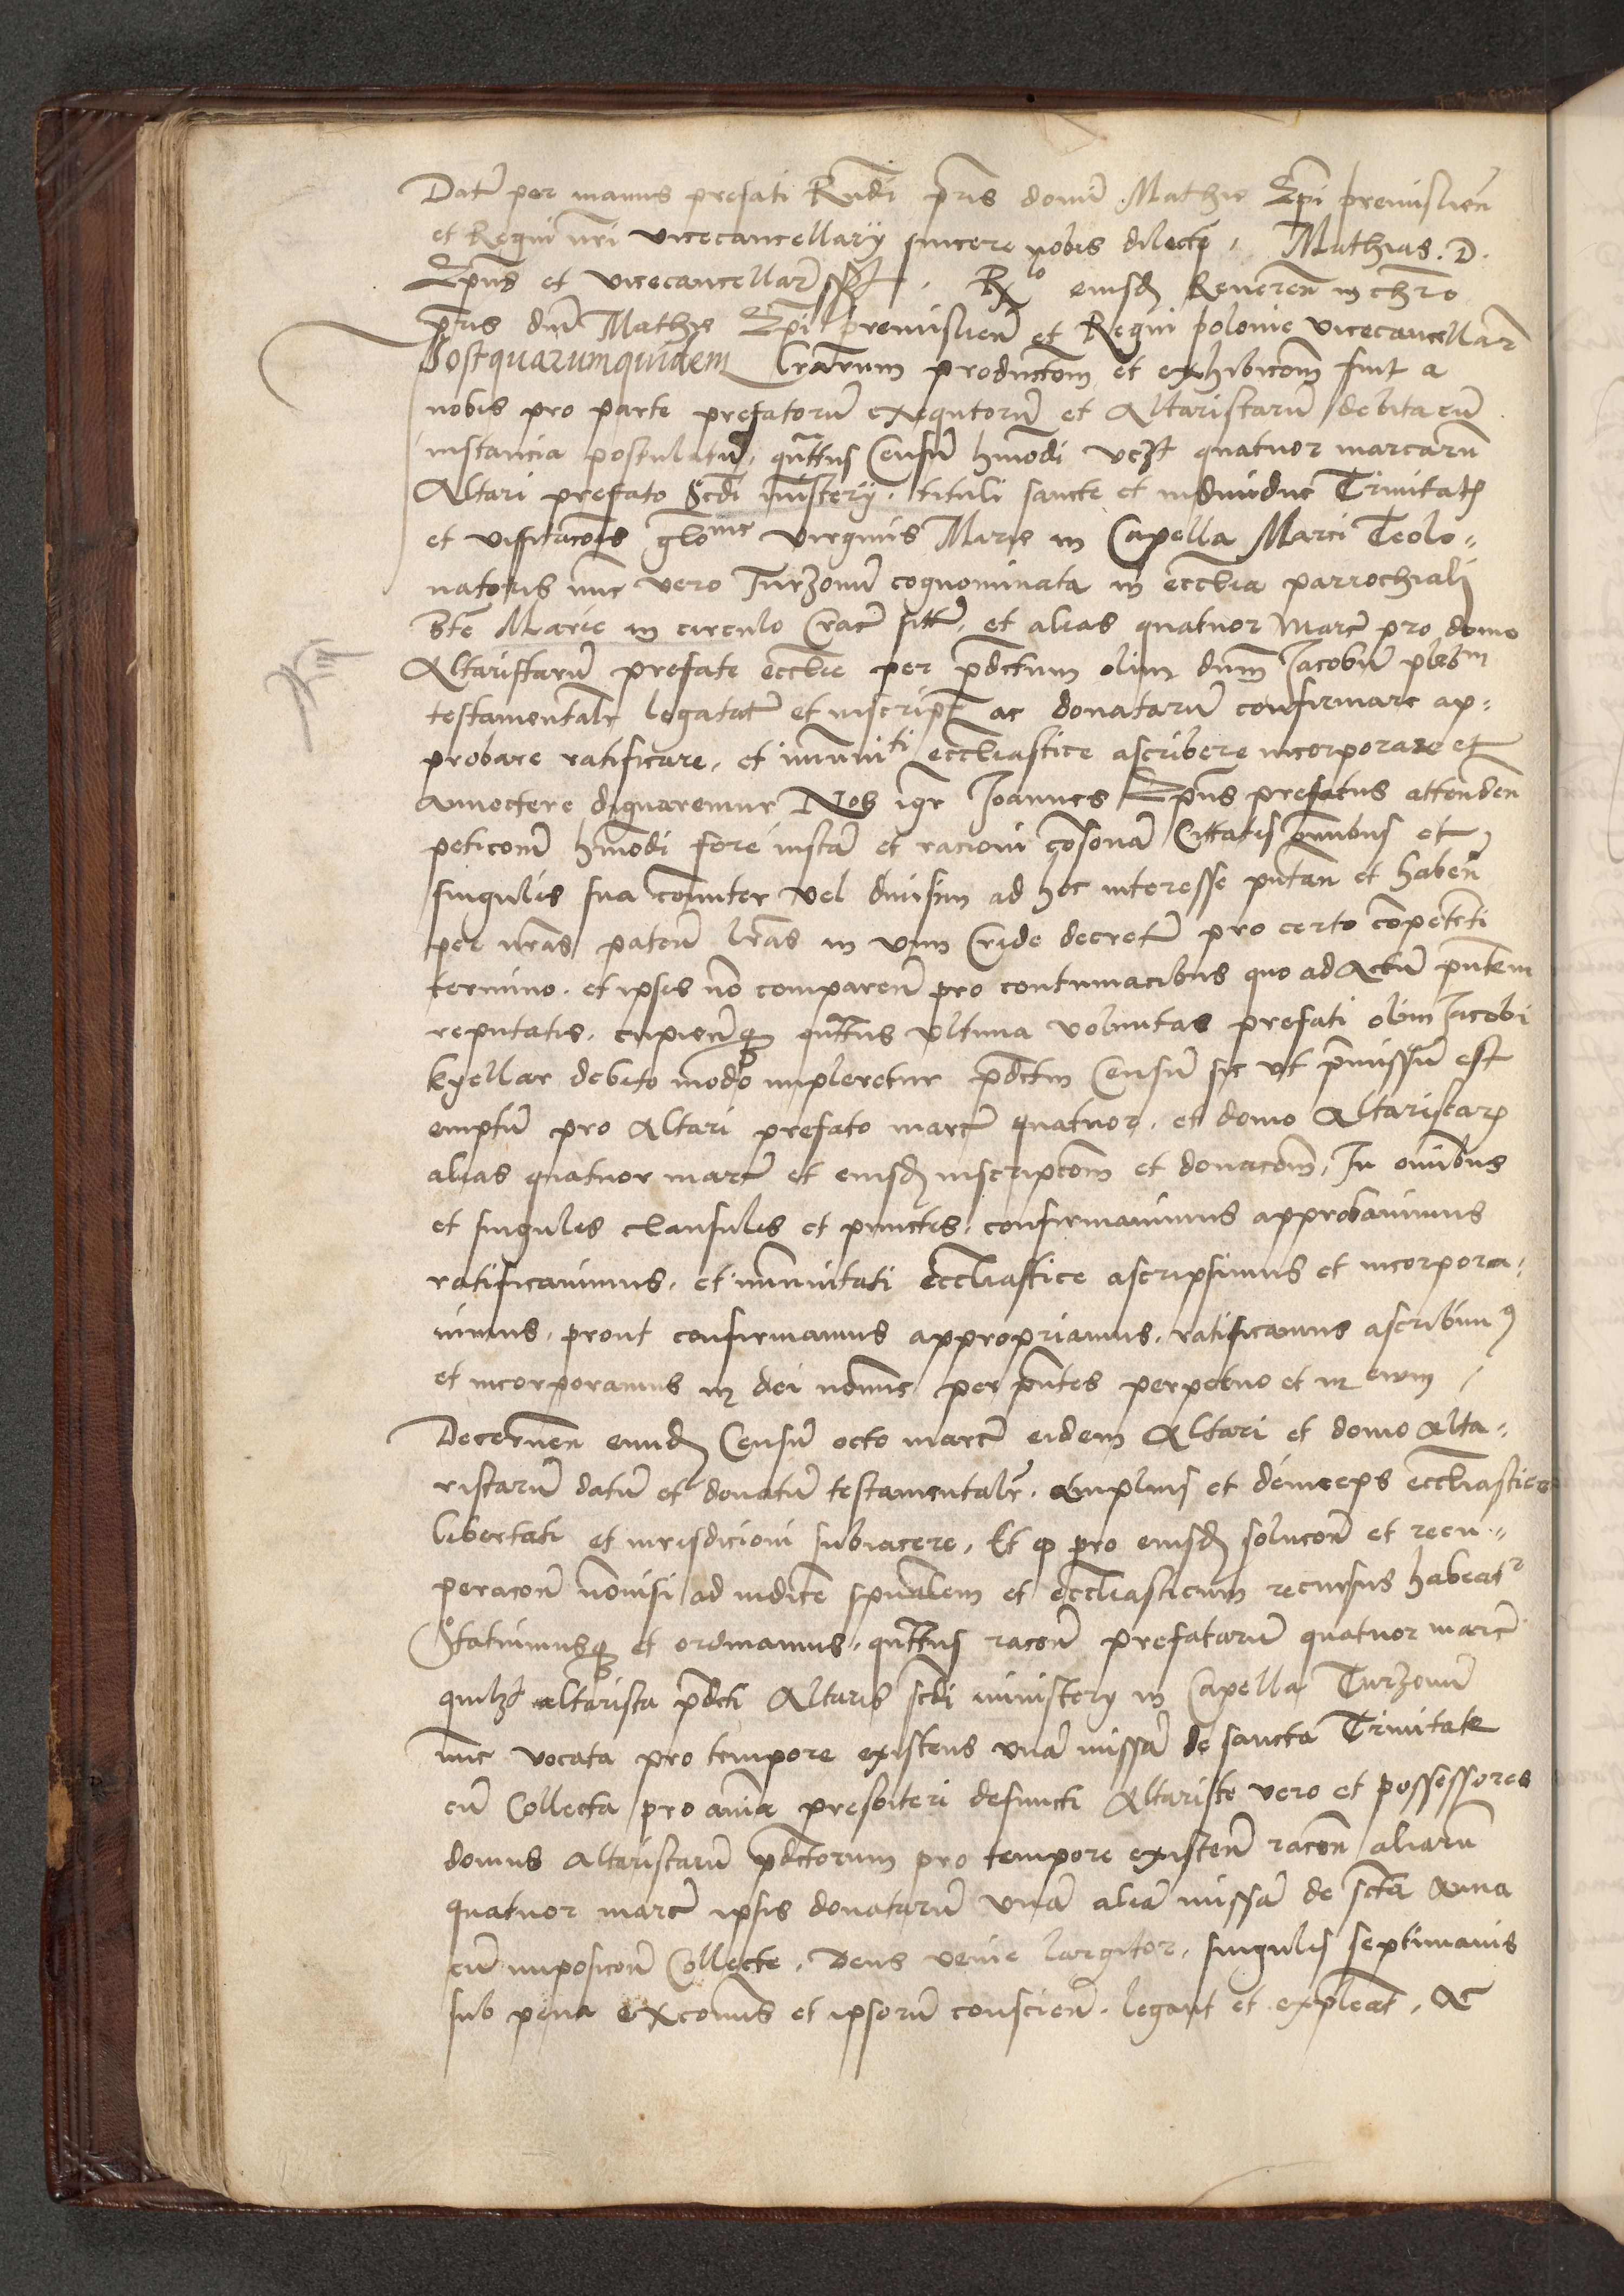 Datum per manus prefati Rndi pris domi Mathie Epi premislien
et Regni nri vicecancellarij sincere nobis dilecti. Mathias. D.
Epus et vicecancellar sspt. Rlo eiusd Reueren in chro
pris dni Mathie Epi premislien et Regni polonie vicecancellar
Postquarumquidem lrarum productom et exhibicom fuit a
nobis pro parte prefatoru exequtoru et Altaristaru debita cu
instancia postulatu, qutus Censu hmodi vczt quatuor marcaru
Altari prefato Scdi misterij. tituli sancte et indiuidue Trinitat
et visitacois glome virginis Marie in Capella Marci Teolo-
natoris nunc vero Turzonu cognominata in ecclia parrochiali
bte Marie in circulo Crac sitti, et alias quatuor Marc pro domo
Altaristaru prefate ecclie per pdctum olim dum Jacobu plebm
testamentalr legatat et inscript ac donataru confirmare ap-
probare ratificare, et imuniti eccliastice ascribere incorporare et
annectere dignaremur Nos igr Joannes Epus prefatus attenden
peticom hmodi fore iusta et racioni cosona Citatis omnibus et
singulis sua comuniter vel diuisim ad hoc interesse putan et haben
per nras paten lras in vim Cride decret pro certo copeteti
termino. et ipsis no comparen pro contumacibus quo ad Actu pntem
reputatis, cupienq qutus vltima voluntas prefati olim Jacobi
kyellar debito modo impleretur pdctm Censu sic vt pmissu est
emptu pro Altari prefato marc quatuor, et domo Altaristar
alias quatuor marc et eiusd inscripcom et donacom, In omibus
et singulis clausulis et punctis, confirmauimus approbauimus
ratificauimus, et imunitati eccliastice ascripsimus et incorpora-
uimus, prout confirmamus appropriamus, ratificamus ascribim9
et incorporamus in dei nomie per pntes perpetuo et in euum
Decernen eund Censu octo marc eidem Altari et domo Alta-
ristaru datu et donatu testamentalr, amplius et deinceps eccliastice
libertati et iurisdicioni subiacere, Et q pro eiusd solucon et recu-
peracon nonisi ad iudice spualem et eccliasticum recursus habeatr
Statuimusq et ordinamus, qutus racon prefataru quatuor marc
quilzt altarista pdcti Altaris scdi ministerij in Capella Turzonu
nunc vocata pro tempore existens vna missa de sancta Trinitate
cu Collecta pro aima presbiteri defuncti Altariste vero et possessores
domus Altaristaru pdctorum pro tempore existen racon aliaru
quatuor marc ipsis donataru vna alia missa de scta Anna
cu imposicon Collecte, Deus venie largitor, singulis septimanis
sub pena excomis et ipsoru conscien. legant et expleat, Ac